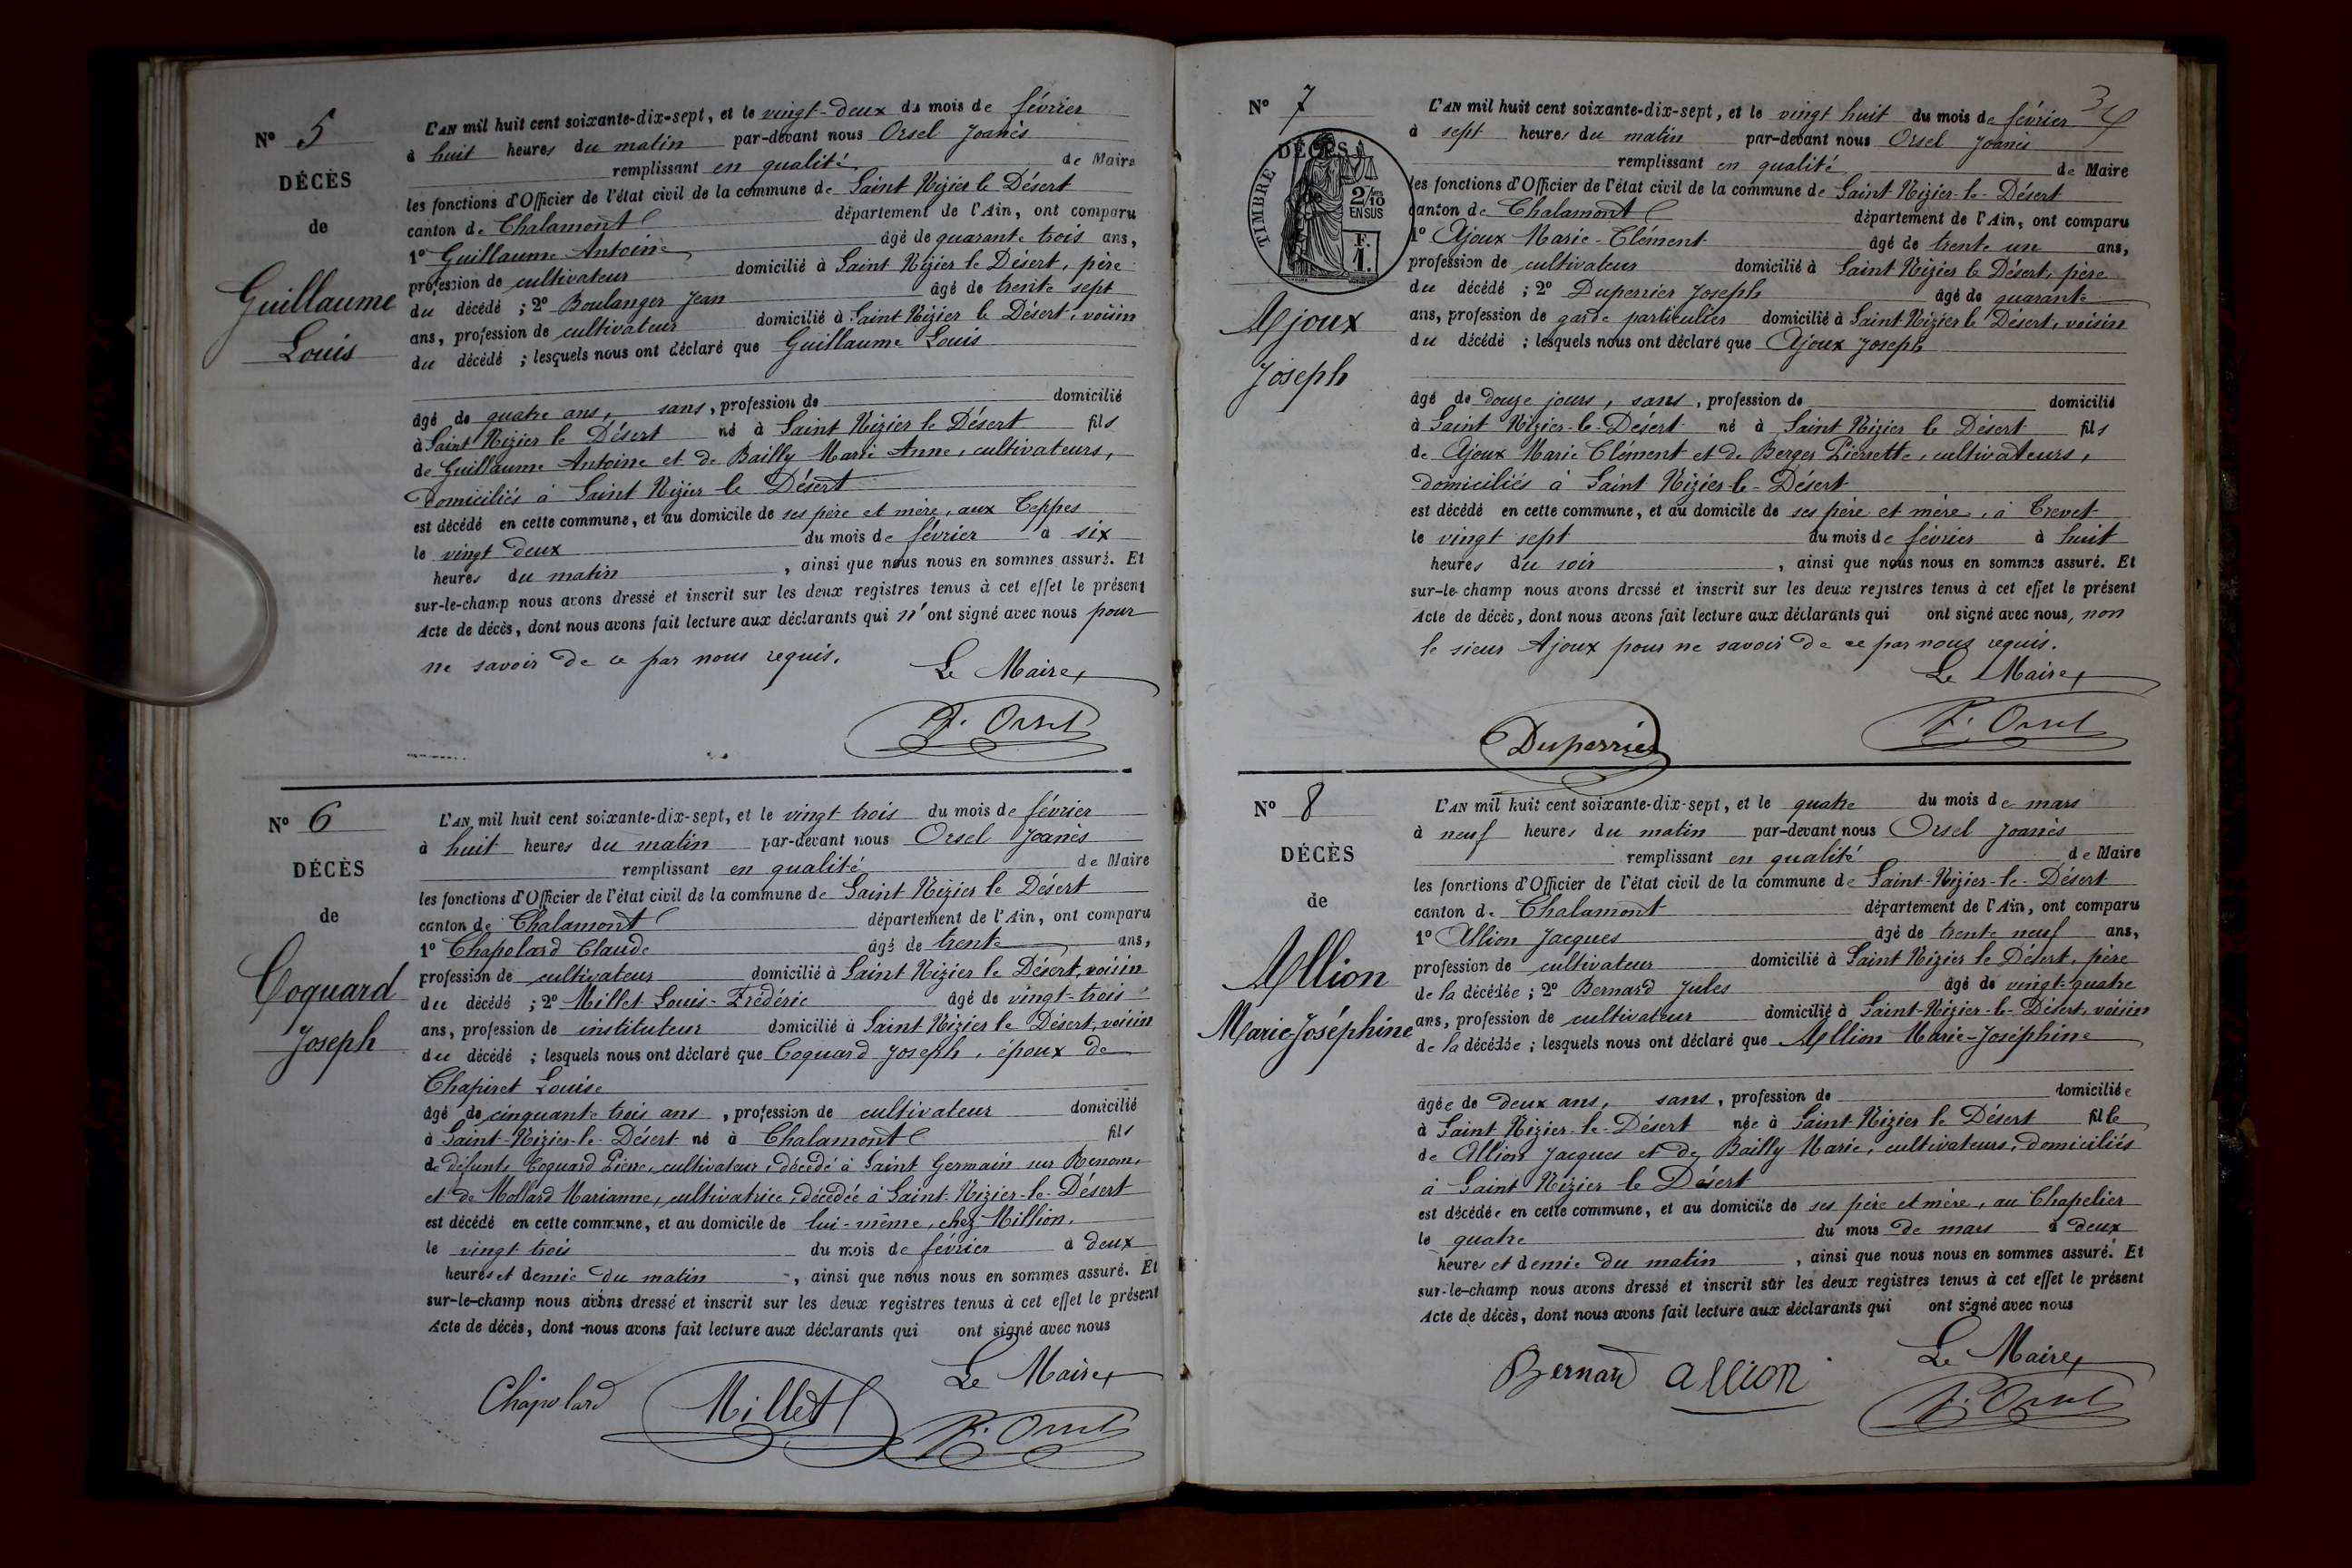 N° 5
DÉCÈS
de
Guillaume
Louis
L'AN mil huit cent soixante-dix-sept, et le vingt-deux du mois de février
à huit heures du matin par-devant nous Orsel Joanès
remplissant en qualité de Maire
les fonctions d'Officier de l'état civil de la commune de Saint Nizier le Désert
canton de Chalamont département de l'Ain, ont comparu
1° Guillaume Antoine âgé de quarante trois ans,
profession de cultivateur domicilié à Saint Nizier le Désert, père
du décédé ; 2° Boulanger Jean âgé de trente sept
ans, profession de cultivateur domicilié à Saint Nizier le Désert, voisin
du décédé ; lesquels nous ont déclaré que Guillaume Louis
âgé de quatre ans, sans, profession de domicilié
à Saint Nizier le Désert né à Saint Nizier le Désert fils
de Guillaume Antoine et de Bailly Marie Anne, cultivateurs,
domiciliés à Saint Nizier le Désert
est décédé en cette commune, et au domicile de ses père et mère, aux Teppes
le vingt deux du mois de février à six
heures du matin, ainsi que nous nous en sommes assuré. Et
sur-le-champ nous avons dressé et inscrit sur les deux registres tenus à cet effet le présent
Acte de décès, dont nous avons fait lecture aux déclarants qui n'ont signé avec nous pour
ne savoir de ce par nous requis.
Le Maire
J. Orsel
N° 6
DÉCÈS
de
Coquard
Joseph
L'AN mil huit cent soixante-dix-sept, et le vingt trois du mois de février
à huit heures du matin par-devant nous Orsel Joanès
remplissant en qualité de Maire
les fonctions d'Officier de l'état civil de la commune de Saint Nizier le Désert
canton de Chalamont département de l'Ain, ont comparu
1° Chapolard Claude âgé de trente ans,
profession de cultivateur domicilié à Saint Nizier le Désert, voisin
du décédé ; 2° Millet Louis-Frédéric âgé de vingt-trois
ans, profession de instituteur domicilié à Saint Nizier le Désert, voisin
du décédé ; lesquels nous ont déclaré que Coquard Joseph, époux de
Chapiret Louise
âgé de cinquante trois ans, profession de cultivateur domicilié
à Saint-Nizier-le-Désert né à Chalamont fils
de défunts Coquard Pierre, cultivateur, décédé à Saint Germain sur Renom,
et de Mollard Marianne, cultivatrice, décédée à Saint-Nizier-le-Désert
est décédé en cette commune, et au domicile de lui-même, chez Million,
le vingt trois du mois de février à deux
heures et demie du matin, ainsi que nous nous en sommes assuré. Et
sur-le-champ nous avons dressé et inscrit sur les deux registres tenus à cet effet le présent
Acte de décès, dont nous avons fait lecture aux déclarants qui ont signé avec nous
Le Maire
Chapolard Millet J. Orsel
34
N° 7
DÉCÈS
TIMBRE
2/10
EN SUS
F.
1.
Ajoux
Joseph
L'AN mil huit cent soixante-dix-sept, et le vingt huit du mois de février
à sept heures du matin par-devant nous Orsel Joanès
remplissant en qualité de Maire
les fonctions d'Officier de l'état civil de la commune de Saint Nizier-le-Désert
canton de Chalamont département de l'Ain, ont comparu
1° Ajoux Marie-Clément âgé de trente un ans,
profession de cultivateur domicilié à Saint Nizier le Désert, père
du décédé ; 2° Duperrier Joseph âgé de quarante
ans, profession de garde particulier domicilié à Saint Nizier le Désert, voisin
du décédé ; lesquels nous ont déclaré que Ajoux Joseph
âgé de douze jours, sans, profession de domicilié
à Saint Nizier-le-Désert né à Saint Nizier le Désert fils
de Ajoux Marie Clément et de Berger Pierrette, cultivateurs,
domiciliés à Saint Nizier-le-Désert
est décédé en cette commune, et au domicile de ses père et mère, à Crevet
le vingt sept du mois de février à huit
heures du soir, ainsi que nous nous en sommes assuré. Et
sur-le-champ nous avons dressé et inscrit sur les deux registres tenus à cet effet le présent
Acte de décès, dont nous avons fait lecture aux déclarants qui ont signé avec nous, non
le sieur Ajoux pour ne savoir de ce par nous requis.
Le Maire
Duperrier J. Orsel
N° 8
DÉCÈS
de
Allion
Marie-Joséphine
L'AN mil huit cent soixante-dix-sept, et le quatre du mois de mars
à neuf heures du matin par-devant nous Orsel Joanès
remplissant en qualité de Maire
les fonctions d'Officier de l'état civil de la commune de Saint-Nizier-le-Désert
canton de Chalamont département de l'Ain, ont comparu
1° Allion Jacques âgé de trente neuf ans,
profession de cultivateur domicilié à Saint Nizier le Désert, père
de la décédée ; 2° Bernard Jules âgé de vingt-quatre
ans, profession de cultivateur domicilié à Saint-Nizier-le-Désert, voisin
de la décédée ; lesquels nous ont déclaré que Allion Marie-Joséphine
âgée de deux ans, sans, profession de domiciliée
à Saint Nizier-le-Désert née à Saint-Nizier le Désert fille
de Allion Jacques et de Bailly Marie, cultivateurs, domiciliés
à Saint Nizier le Désert
est décédée en cette commune, et au domicile de ses père et mère, au Chapelier
le quatre du mois de mars à deux
heures et demie du matin, ainsi que nous nous en sommes assuré. Et
sur-le-champ nous avons dressé et inscrit sur les deux registres tenus à cet effet le présent
Acte de décès, dont nous avons fait lecture aux déclarants qui ont signé avec nous
Le Maire
Bernard allion J. Orsel